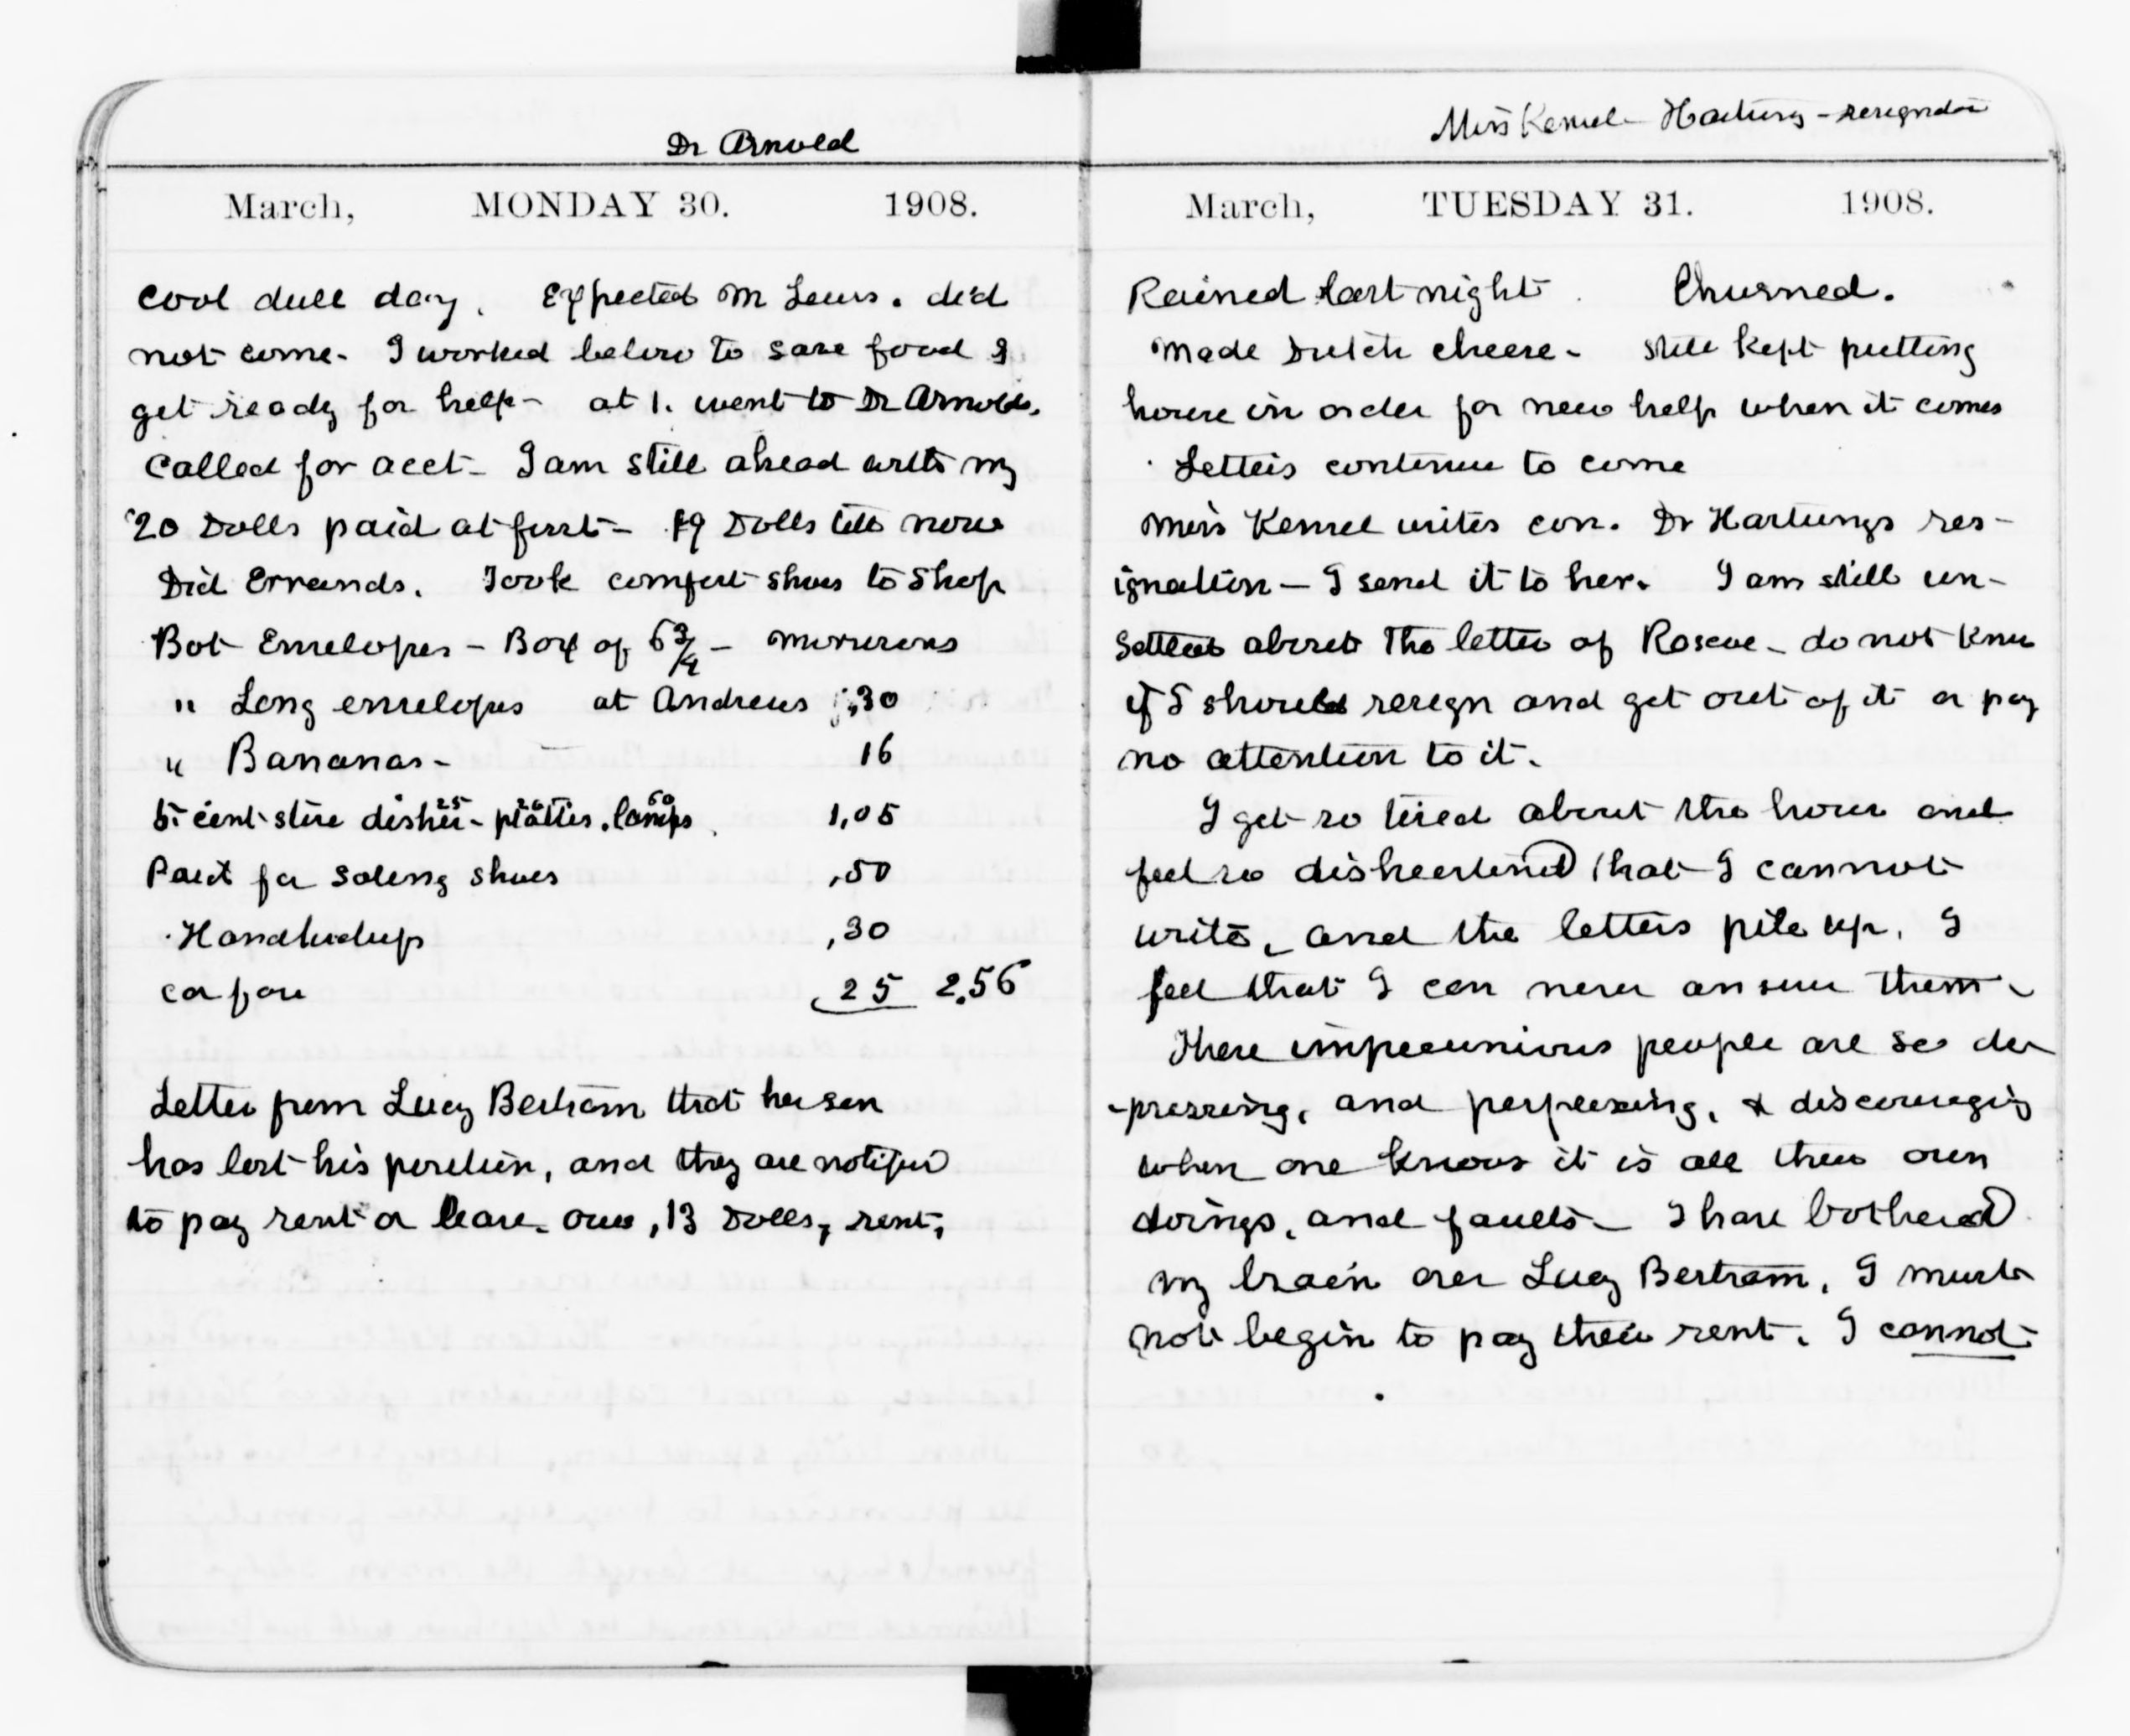 Dr Arnold
March, MONDAY 30. 1908.
Cool dull day. Expected M Lewis. did
not come. I worked below to save food &
get ready for help - at 1. went to Dr Arnolds.
Called for acct - I am still ahead with my
20 Dolls paid at first - 19 Dolls till now
Did Errands. Took comfort shoes to shop
Bot Envelopes - Box of 6 3/4 -
" Long envelopes at Andrews ,30
" Bananas - 16
5 cent store dishes 25 - platter, lamps 60 1,05
Paid for soleing shoes ,50
,30
Car fare 25 2,56
Letter from Lucy Bertram that her son
has lost his position, and they are notified
to pay rent or leave. owe, 13 Dolls, rent,
Miss Kensel - Hartung - resignation
March, TUESDAY 31. 1908.
Rained last night. Churned.
Made Dutch cheese - still kept putting
house in order for new help when it comes
Letters continue to come
Miss Kensel writes con. Dr Hartungs res-
ignation - I send it to her. I am still un-
settled about the letter of Roscoe - do not know
if I should resign and get out of it or pay
no attention to it.
I get so tired about the house and
feel so disheartened that I cannot
write, and the letters pile up. I
feel that I can never answer them -
These impecunious people are so de
-pressing, and perplexing, & discouraging
when one knows it is all their own
doings, and faults - I have bothered
my brain over Lucy Bertram. I must
not begin to pay their rent. I cannot